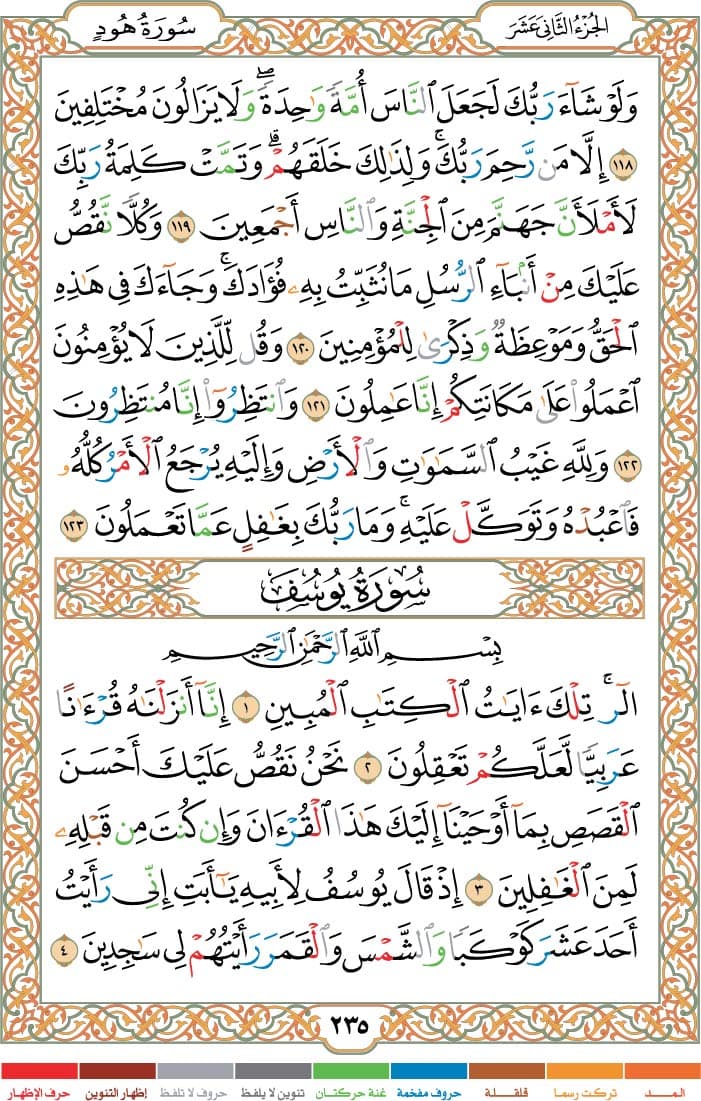 الجُزْءُ الثَّانِي عَشَرَ
سُورَةُ هُودٍ
وَلَوْ شَآءَ رَبُّكَ لَجَعَلَ ٱلنَّاسَ أُمَّةً وَٰحِدَةً ۖ وَلَا يَزَالُونَ مُخْتَلِفِينَ
١١٨ إِلَّا مَن رَّحِمَ رَبُّكَ ۚ وَلِذَٰلِكَ خَلَقَهُمْ ۗ وَتَمَّتْ كَلِمَةُ رَبِّكَ
لَأَمْلَأَنَّ جَهَنَّمَ مِنَ ٱلْجِنَّةِ وَٱلنَّاسِ أَجْمَعِينَ ١١٩ وَكُلًّا نَّقُصُّ
عَلَيْكَ مِنْ أَنۢبَآءِ ٱلرُّسُلِ مَا نُثَبِّتُ بِهِۦ فُؤَادَكَ ۚ وَجَآءَكَ فِى هَٰذِهِ
ٱلْحَقُّ وَمَوْعِظَةٌ وَذِكْرَىٰ لِلْمُؤْمِنِينَ ١٢٠ وَقُل لِّلَّذِينَ لَا يُؤْمِنُونَ
ٱعْمَلُوا۟ عَلَىٰ مَكَانَتِكُمْ إِنَّا عَٰمِلُونَ ١٢١ وَٱنتَظِرُوٓا۟ إِنَّا مُنتَظِرُونَ
١٢٢ وَلِلَّهِ غَيْبُ ٱلسَّمَٰوَٰتِ وَٱلْأَرْضِ وَإِلَيْهِ يُرْجَعُ ٱلْأَمْرُ كُلُّهُۥ
فَٱعْبُدْهُ وَتَوَكَّلْ عَلَيْهِ ۚ وَمَا رَبُّكَ بِغَٰفِلٍ عَمَّا تَعْمَلُونَ ١٢٣
سُورَةُ يُوسُفَ
بِسْمِ ٱللَّهِ ٱلرَّحْمَٰنِ ٱلرَّحِيمِ
الٓر ۚ تِلْكَ ءَايَٰتُ ٱلْكِتَٰبِ ٱلْمُبِينِ ١ إِنَّآ أَنزَلْنَٰهُ قُرْءَٰنًا
عَرَبِيًّا لَّعَلَّكُمْ تَعْقِلُونَ ٢ نَحْنُ نَقُصُّ عَلَيْكَ أَحْسَنَ
ٱلْقَصَصِ بِمَآ أَوْحَيْنَآ إِلَيْكَ هَٰذَا ٱلْقُرْءَانَ وَإِن كُنتَ مِن قَبْلِهِۦ
لَمِنَ ٱلْغَٰفِلِينَ ٣ إِذْ قَالَ يُوسُفُ لِأَبِيهِ يَٰٓأَبَتِ إِنِّى رَأَيْتُ
أَحَدَ عَشَرَ كَوْكَبًا وَٱلشَّمْسَ وَٱلْقَمَرَ رَأَيْتُهُمْ لِى سَٰجِدِينَ ٤
٢٣٥
المــد تركت رسما قلقـلة حروف مفخمة غنة حركتان تنوين لا يلفظ حروف لا تلفظ إظهار التنوين حرف الإظهار